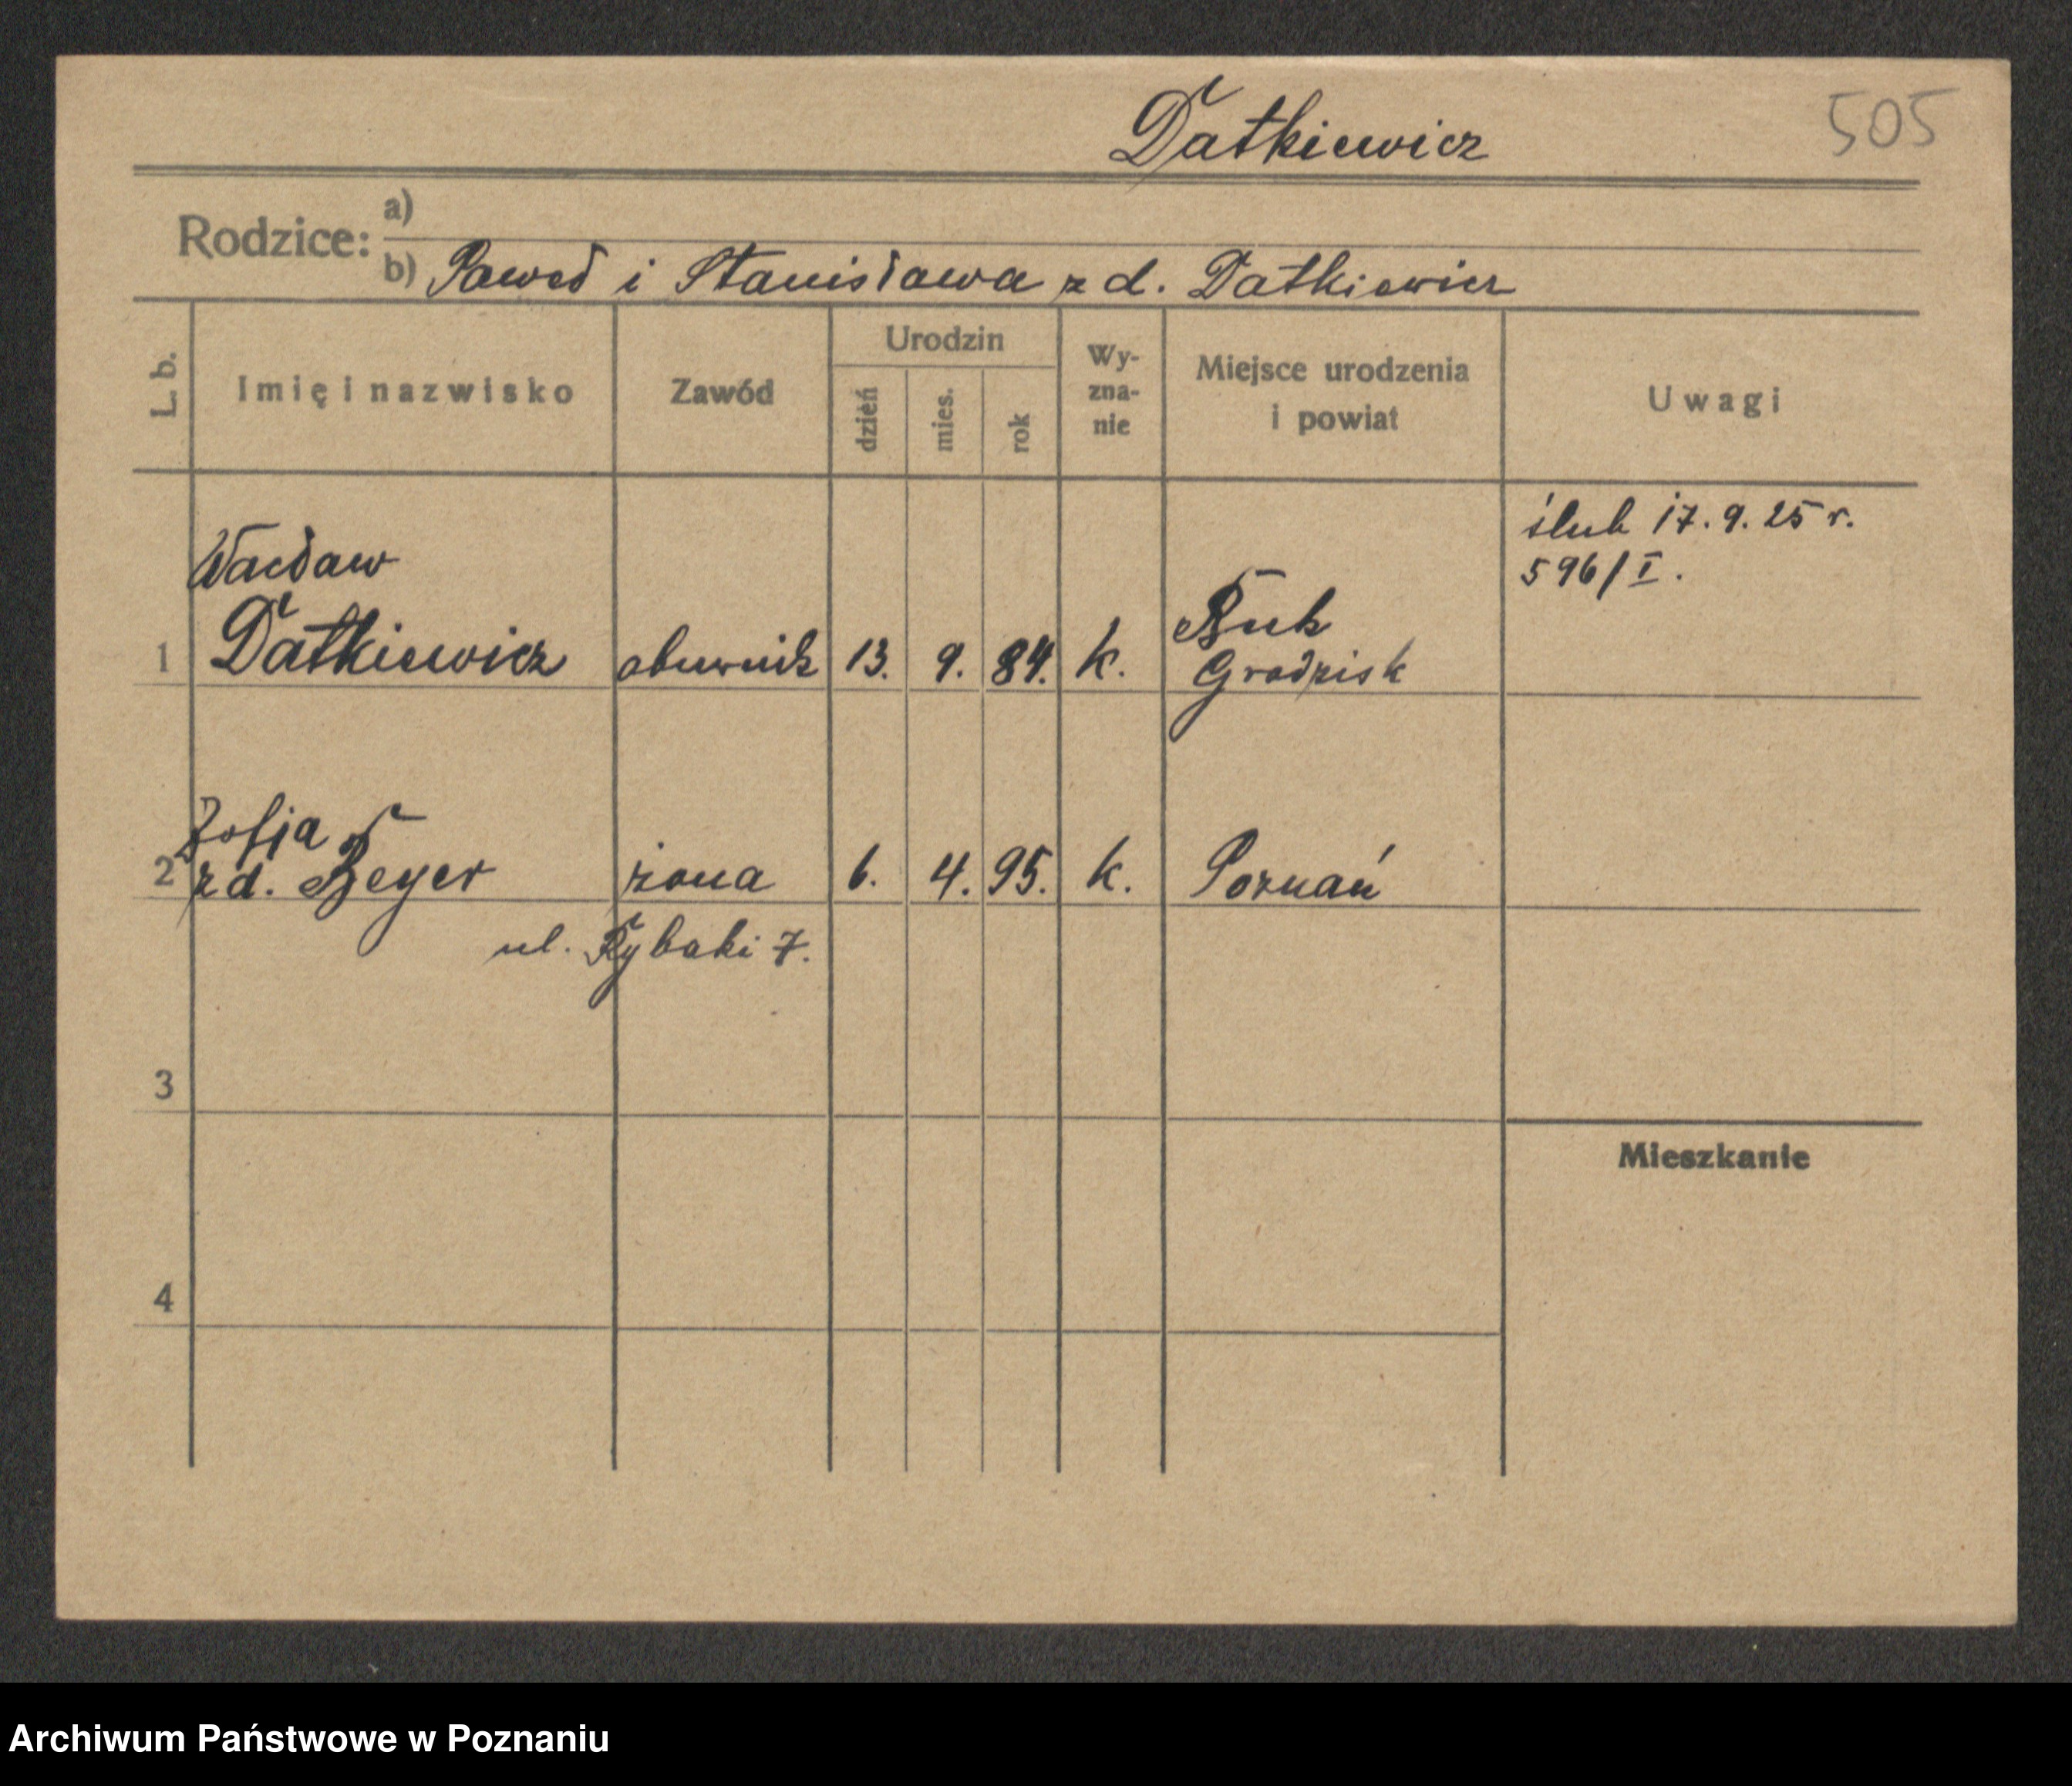 Datkiewicz
505
Rodzice:
a)
b) Paweł i Stanisława z d. Datkiewicz
L. b.
Imię i nazwisko
Zawód
Urodzin
dzień
mies.
rok
Wy-
zna-
nie
Miejsce urodzenia
i powiat
Uwagi
ślub 17. 9. 25 r.
596/I.
Wacław
1 Datkiewicz obuwnik 13. 9. 84. k. Buk
Grodzisk
Zofja
2 z d. Beyer żona 6. 4. 95. k. Poznań
ul. Rybaki 7.
3
Mieszkanie
4
Archiwum Państwowe w Poznaniu